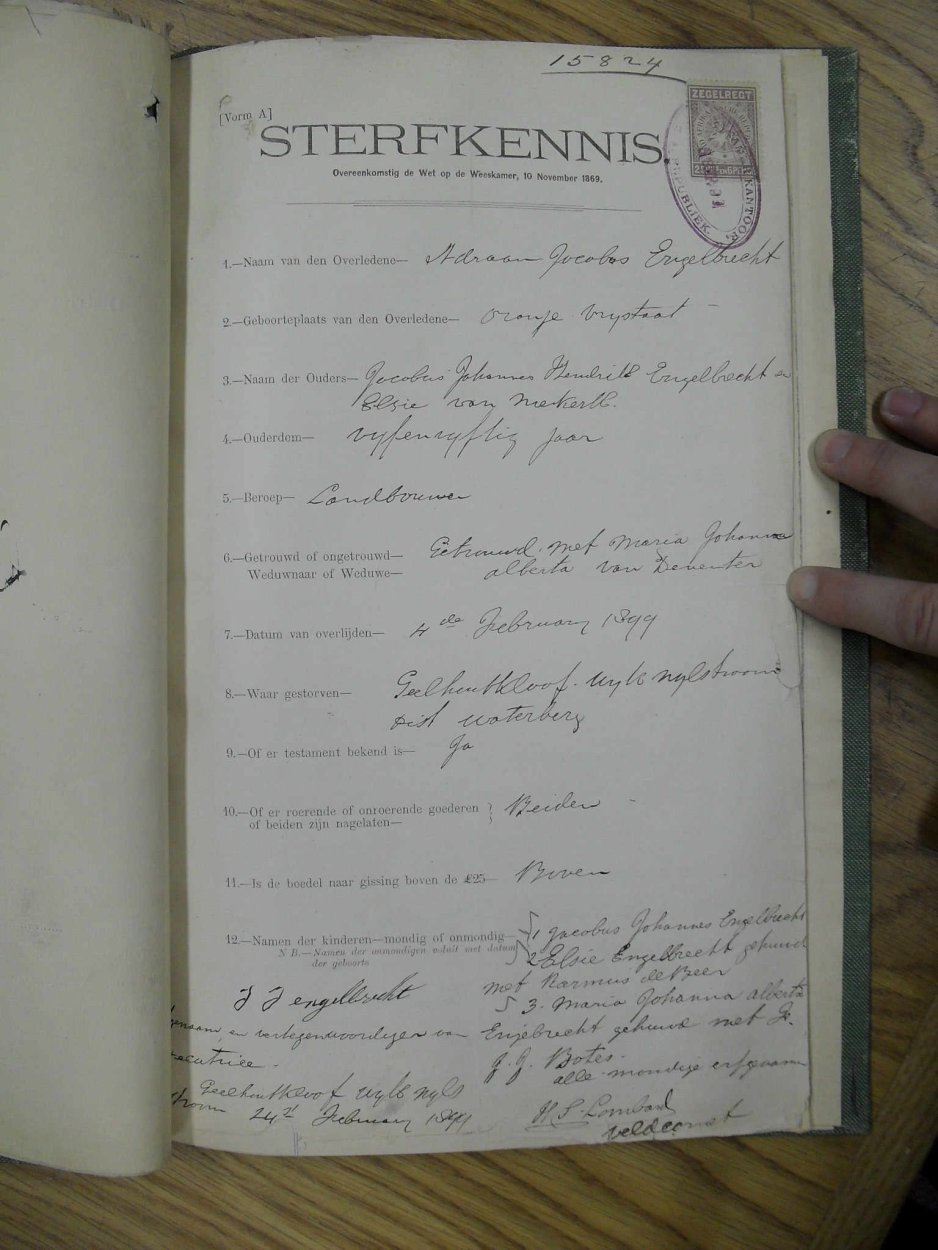 15824
[Vorm A]
STERFKENNIS.
Overeenkomstig de Wet op de Weeskamer, 10 November 1869.
ZEGELREGT
KANTOOR.
REPUBLIEK.
1.—Naam van den Overledene— Adraan Jacobus Engelbrecht
2.—Geboorteplaats van den Overledene— Oranje Vrystaat
3.—Naam der Ouders— Jacobus Johannes Hendrik Engelbrecht en
Elsie van
4.—Ouderdom— vyfenvyftig jaar
5.—Beroep— Landbouwer
6.—Getrouwd of ongetrouwd— Getrouwd met Maria Johanna
Weduwnaar of Weduwe— alberta van Deventer
7.—Datum van overlijden— 4de February 1899
8.—Waar gestorven— Geelhoutkloof. wyk nylstroom
Dist waterberg
9.—Of er testament bekend is— Ja
10.—Of er roerende of onroerende goederen } Beiden
of beiden zijn nagelaten—
11.—Is de boedel naar gissing boven de £25— Boven
12.—Namen der kinderen—mondig of onmondig— 1 Jacobus Johannes Engelbrecht
N B.—Namen der onmondigen voluit met datum 2 Elsie Engelbrecht gehuwd
der geboorte
met Rasmus de Beer
3. Maria Johanna alberta
J J engelbrecht
en vertegenwoordiger van Engelbrecht gehuwd met G.
J. J. Botes.
alle mondige erfgenamen
Geelhoutkloof wyk nyls
troom 24st February 1899
H S Lombard
veldcornet